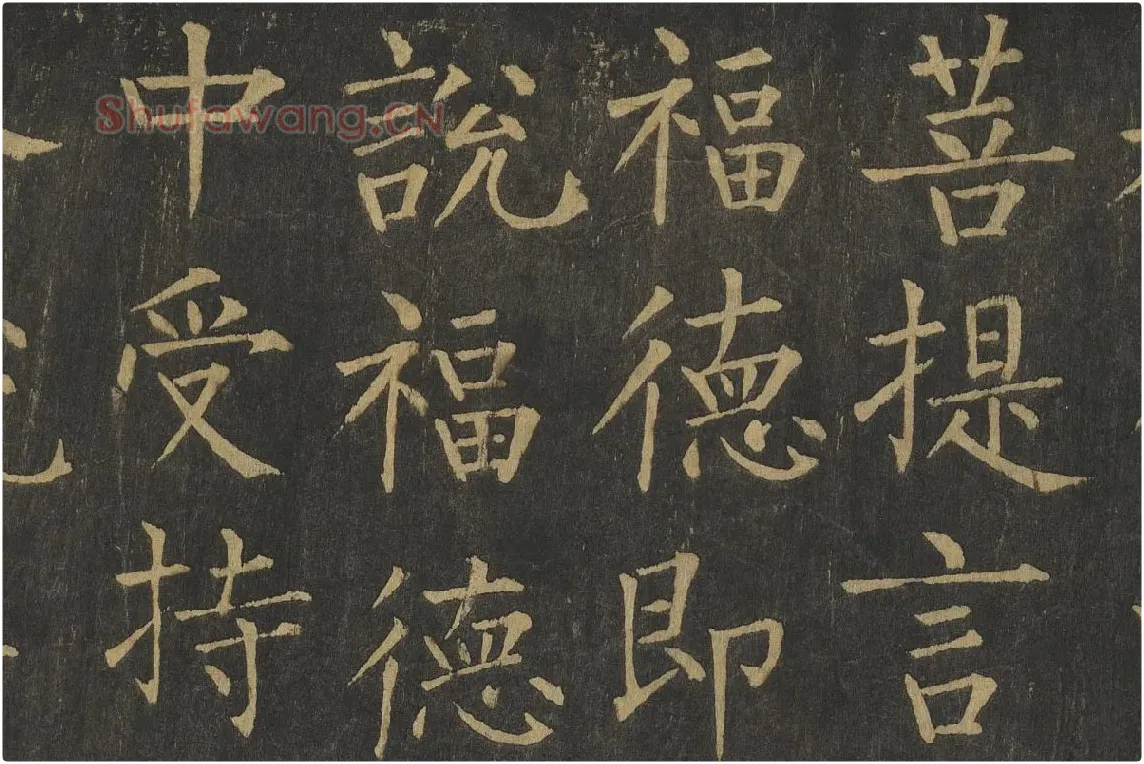 菩提言
福德即
說福德
中受持
Shufawang.CN